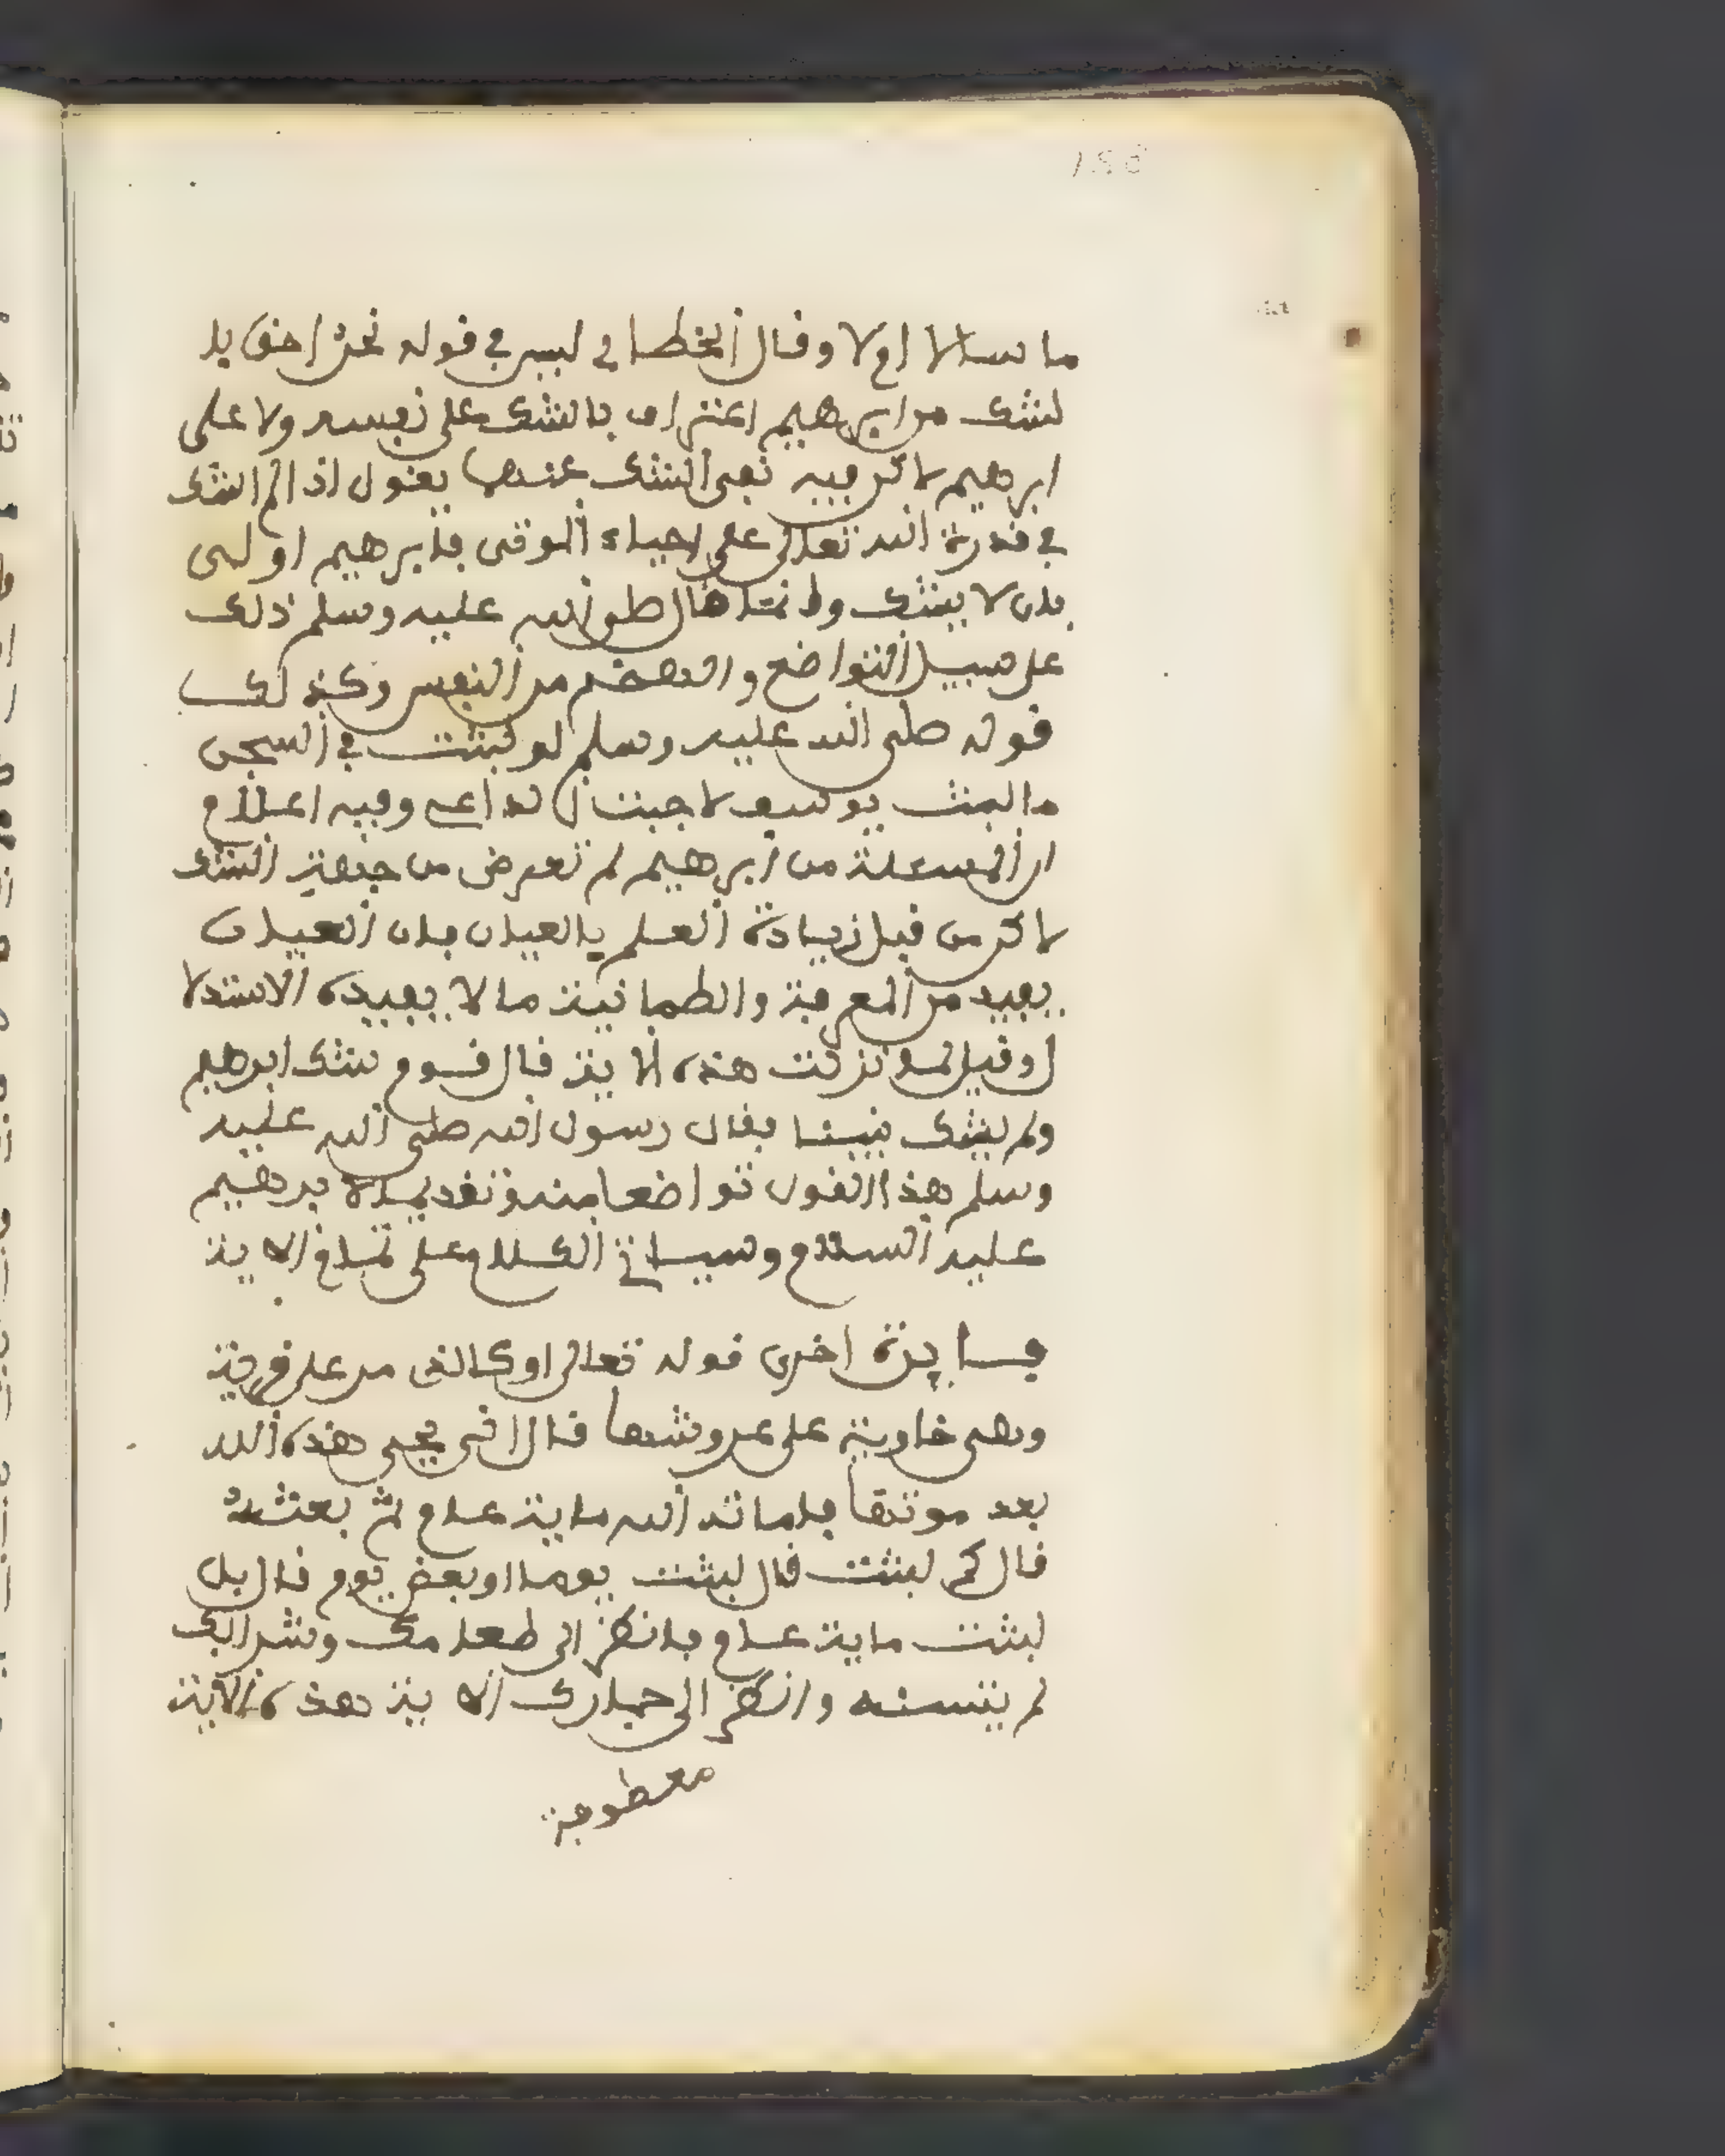 186
ما سالا اولا وقال الخطابي ليس في قوله نحن احق با
لشك من ابرهيم اعتراف بالشك على نفسه ولا على
ابرهيم لاكن فيه نفي الشك عنهما يقول اذا لم اشك
في قدرة الله تعالى على احياء الموتى فابرهيم اولى
بان لا يشك وانما قال صلى الله عليه وسلم ذلك
على سبيل التواضع والهضم من النفس وكذلك
قوله صلى الله عليه وسلم لو لبثت في السجن
ما لبث يوسف لاجبت الداعي وفيه اعلام
ان المسئلة من ابرهيم لم تعرض من جهة الشك
لاكن من قبل زيادة العلم بالعيان فان العيان
يفيد من المعرفة والطمانينة ما لا يفيده الاستدلا
ل وقيل لما نزلت هذه الاية قال قوم شك ابرهيم
ولم يشك نبينا فقال رسول الله صلى الله عليه
وسلم هذا القول تواضعا منه وتقديما لابرهيم
عليه السلام وسياتي الكلام على تمام الاية
فايدة اخرى قوله تعالى او كالذي مر على قرية
وهي خاوية على عروشها قال انى يحيي هذه الله
بعد موتها فاماته الله ماية عام ثم بعثه
قال كم لبثت قال لبثت يوما او بعض يوم قال بل
لبثت ماية عام فانظر الى طعامك وشرابك
لم يتسنه وانظر الى حمارك الاية هذه الاية
معطوفة